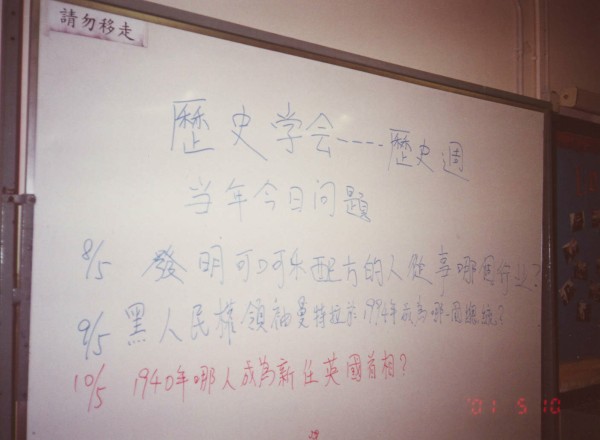 請勿移走
歷史学会----歷史週
当年今日问题
8/5 發明可口可乐配方的人從事哪個行业?
9/5 黑人民權領袖曼特拉於1994年成為哪一國總統?
10/5 1940年哪人成為新任英國首相?
'01 5 10